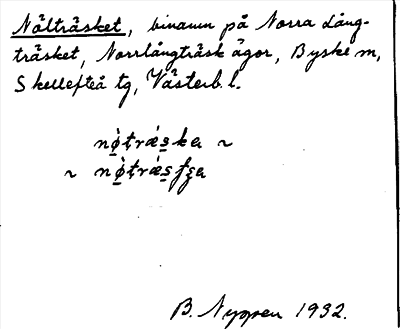 Nölträsket, binamn på Norra Lång-
träsket, Norrlångträsk ägor, Byske sn,
Skellefteå tg, Västerb. l.
nǿ̱träs̱ka ~
~ nǿ̱träs̱fʒa
B. Nygren 1932.